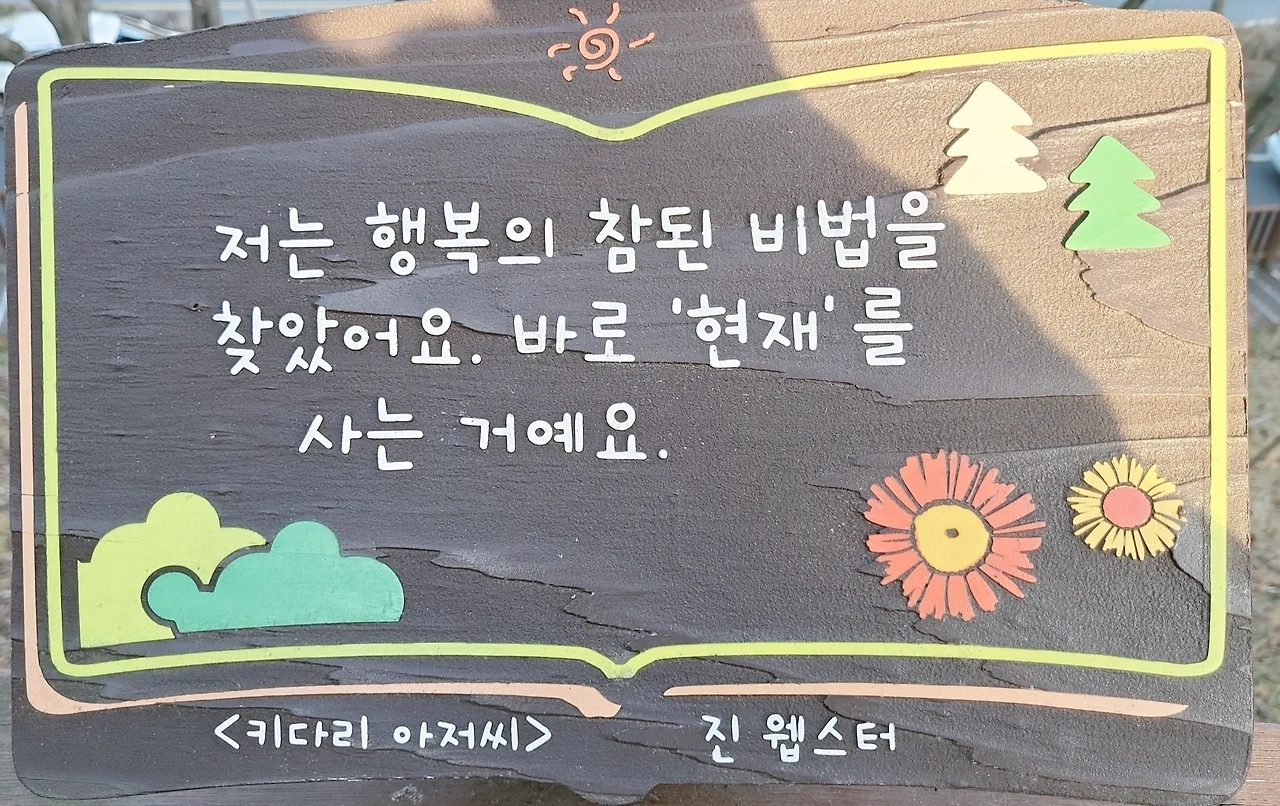 저는 행복의 참된 비법을
찾았어요. 바로 '현재'를
사는 거예요.
<키다리 아저씨> 진 웹스터